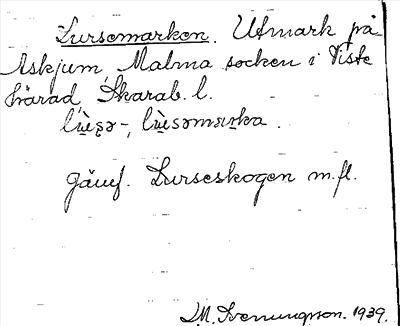 Lursemarken. Utmark på
Askjum, Malma socken i Viste
härad, Skarab. l.
Jämf. Lurseskogen m.fl.
M. Svenungsson. 1939.